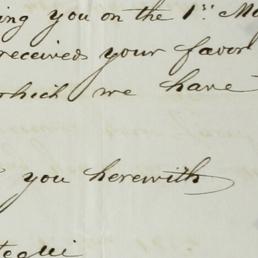 ing you on the 1st. Ma
received your favor
which we have
you herewith
tegui